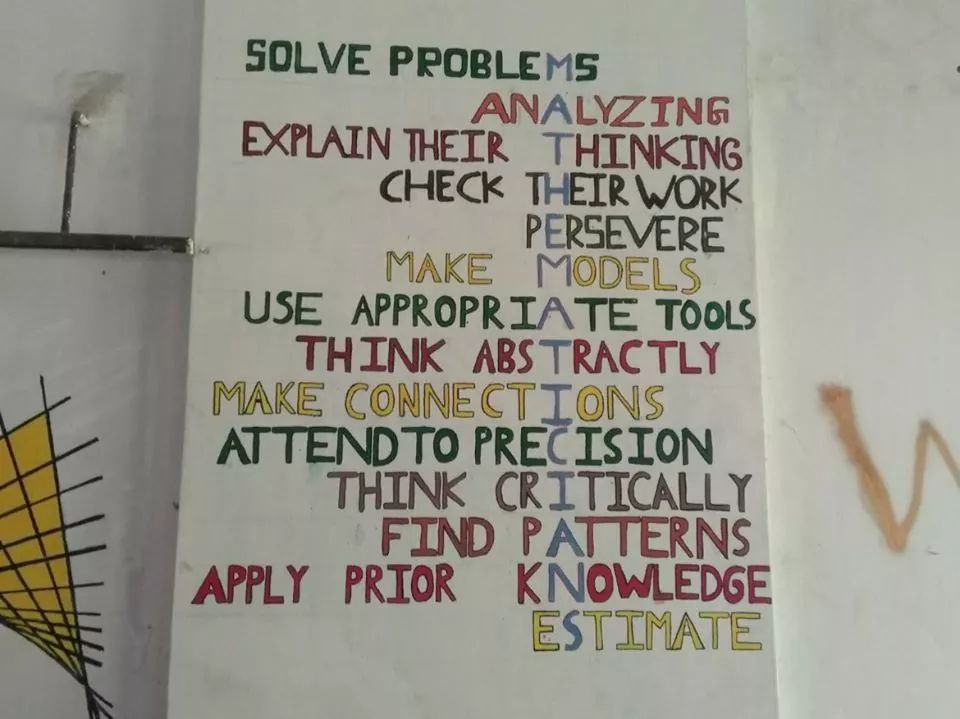 SOLVE PROBLEMS
ANALYZING
EXPLAIN THEIR THINKING
CHECK THEIR WORK
PERSEVERE
MAKE MODELS
USE APPROPRIATE TOOLS
THINK ABSTRACTLY
MAKE CONNECTIONS
ATTEND TO PRECISION
THINK CRITICALLY
FIND PATTERNS
APPLY PRIOR KNOWLEDGE
ESTIMATE